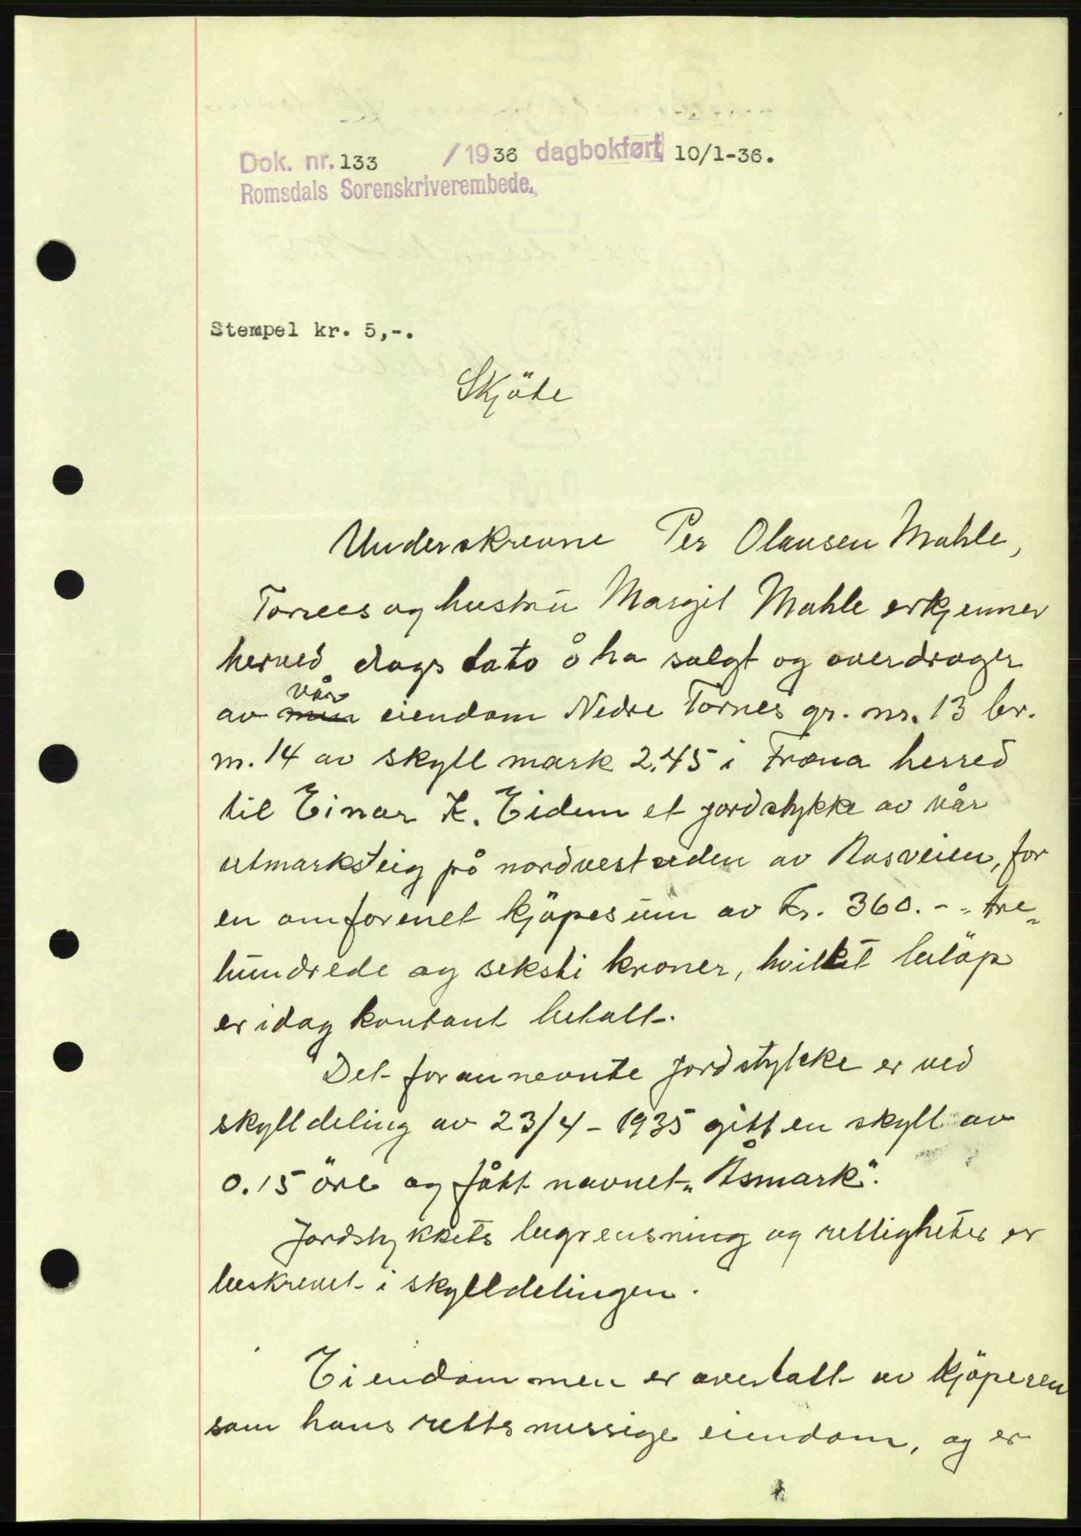 Dok. nr. 133 /1936 dagbokført 10/1-36.
Romsdals Sorenskriverembede.
Stempel kr. 5,-.
Skjöte
Underskrevne Per Olausen Mahle,
Tornes og hustru Margit Mahle erkjenner
herved dags dato å ha solgt og overdrager
vår
av min eiendom Nedre Tornes gr. nr. 13 br.
nr. 14 av skyll mark 2.45 i Fræna herred
til Einar K. Eidem et jordstykke av vår
utmarksteig på nordvestsiden av Aasveien, for
en omforenet kjöpesum av kr. 360.- „tre„
hundrede og seksti kroner, hvilket belöp
er idag kontant betalt.
Det forannevnte jordstykke er ved
skylldeling av 23/4 - 1935 gitt en skyll av
0.15 öre og fått navnet „Åsmark".
Jordstykkets begrensning og rettigheter er
beskrevet i skylldelingen.
Eiendommen er overtatt av kjöperen
som hans rettsmessige eiendom, og er